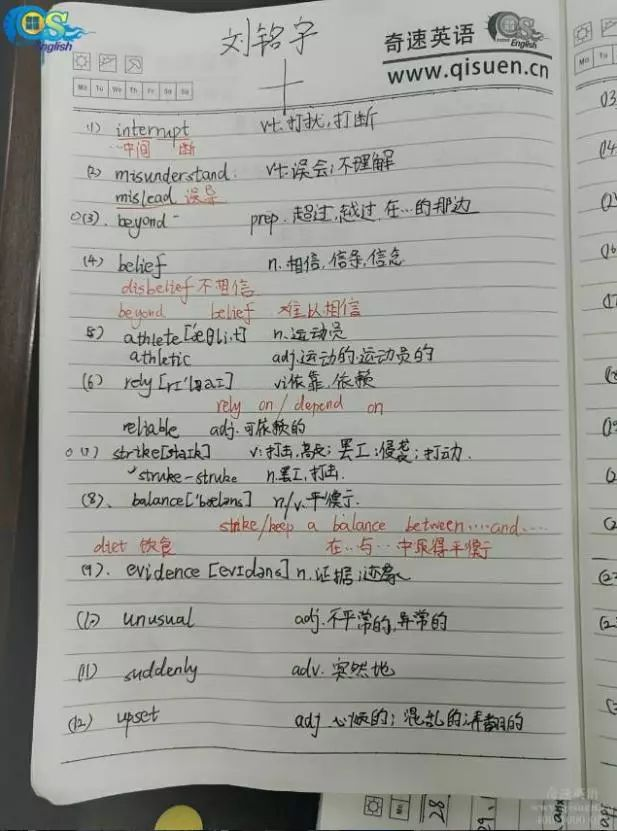 QS English
刘铭宇
奇速英语
QS English
www.qisuen.cn
Mo Tu We Th Fr Sa Su
(1) interrupt vt.打扰,打断
…中间 断
(2) misunderstand. vt.误会;不理解
mislead 误导
(3). beyond prep.超过,越过,在…的那边
(4) belief n.相信,信条,信念
disbelief 不相信
beyond belief 难以相信
5) athlete n.运动员
athletic adj.运动的.运动员的
(6) rely [rɪ'laɪ] vi依靠,依赖
rely on / depend on
reliable adj.可依赖的
(7) strike[staik] v:打击, 罢工;侵袭;打动.
struke-struke n.罢工,打击.
(8)、balance['bæləns] n/v.平衡
strike/keep a balance between……and……
diet 饮食 在…与…中取得平衡
(9)、evidence [evɪdəns] n.证据;迹象
(10) unusual adj.不平常的,异常的
(11) suddenly adv.突然地
(12) upset adj 心烦的;混乱的;弄翻的
奇速英语